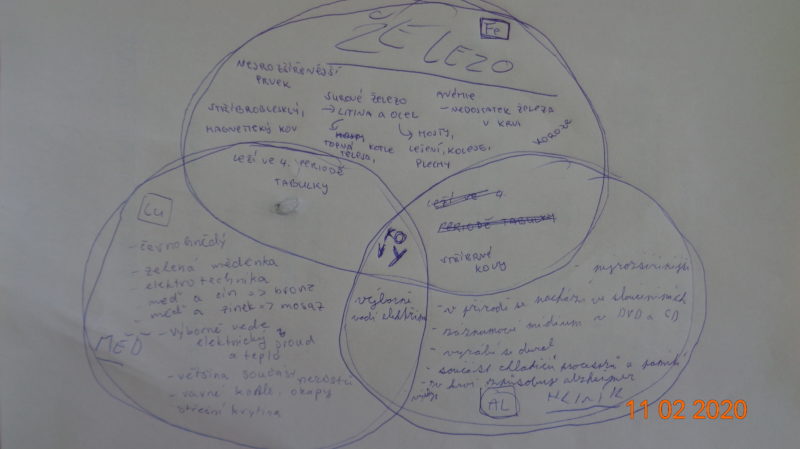 Fe
ŽELEZO
NEJROZŠÍŘENĚJŠÍ
PRVEK
STŘÍBROLESKLÝ,
MAGNETICKÝ KOV
SUROVÉ ŽELEZO
→ LITINA A OCEL
TOPNÁ
TĚLESA,
KOTLE
MOSTY,
LEŠENÍ, KOLEJE,
PLECHY
ANÉMIE
- NEDOSTATEK ŽELEZA
V KRVI
KOROZE
LEŽÍ VE 4. PERIODĚ
TABULKY
LEŽÍ VE 4.
PERIODĚ TABULKY
STŘÍBRNÉ
KOVY
KO
VY
výborně
vodí elektřinu
Cu
MĚĎ
- červenohnědý
- zelená měděnka
- elektrotechnika
- měď a cín => bronz
- měď a zinek => mosaz
- výborně vede
elektrický proud
a teplo
- většina součást nerostů
- varné kotle, okapy
střešní krytina
- nejrozšířenější
- v přírodě se nachází ve sloučeninách
- záznamové médium v DVD a CD
- vyrábí se dural
- součást chladičů procesorů a pamětí
- v krvi způsobuje alzheimer
AL
HLINÍK
11 02 2020